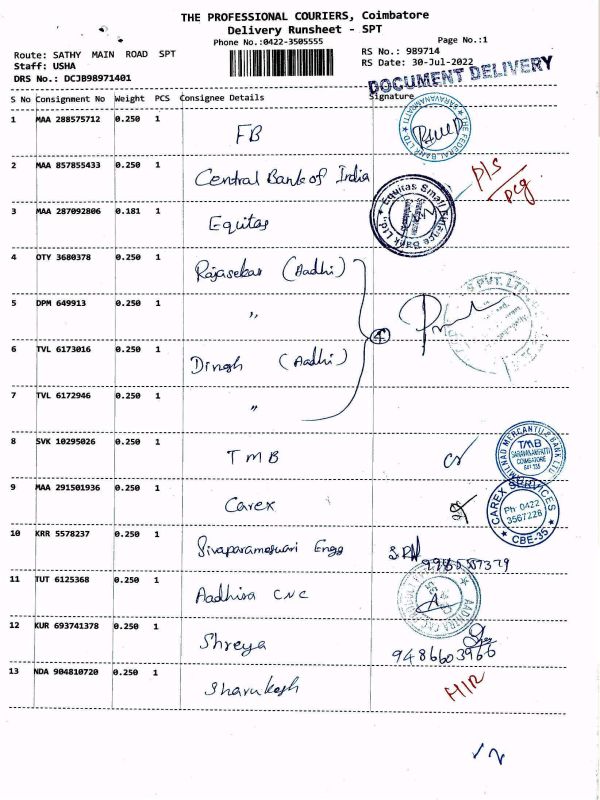 THE PROFESSIONAL COURIERS, Coimbatore
Delivery Runsheet - SPT
Phone No.:0422-3505555
Page No.:1
Route: SATHY MAIN ROAD SPT
RS No.: 989714
Staff: USHA
RS Date: 30-Jul-2022
DRS No.: DCJB98971401
DOCUMENT DELIVERY
S No Consignment No Weight PCS Consignee Details Signature
1 MAA 288575712 0.250 1 FB
THE FEDERAL BANK LTD SARAVANAMPATTI
2 MAA 857855433 0.250 1 Central Bank of India
Pls
3 MAA 287092806 0.181 1 Equitas
Equitas Small Finance Bank Ltd.
4 OTY 3680378 0.250 1 Rajasekar (Aadhi)
5 DPM 649913 0.250 1 "
PVT. LTD
④
6 TVL 6173016 0.250 1 Dinesh (Aadhi)
7 TVL 6172946 0.250 1 "
8 SVK 10295026 0.250 1 TMB
TAMILNAD MERCANTILE BANK LTD
TMB
SARAVANAMPATTI
COIMBATORE
9 MAA 291501936 0.250 1 Carex
CAREX SERVICES
Ph 0422
3567226
CBE-35
10 KRR 5578237 0.250 1 Sivaparameswari Engg
11 TUT 6125368 0.250 1 Aadhira CNC
12 KUR 693741378 0.250 1 Shreya 9486603966
13 NDA 904810720 0.250 1 Sharukesh